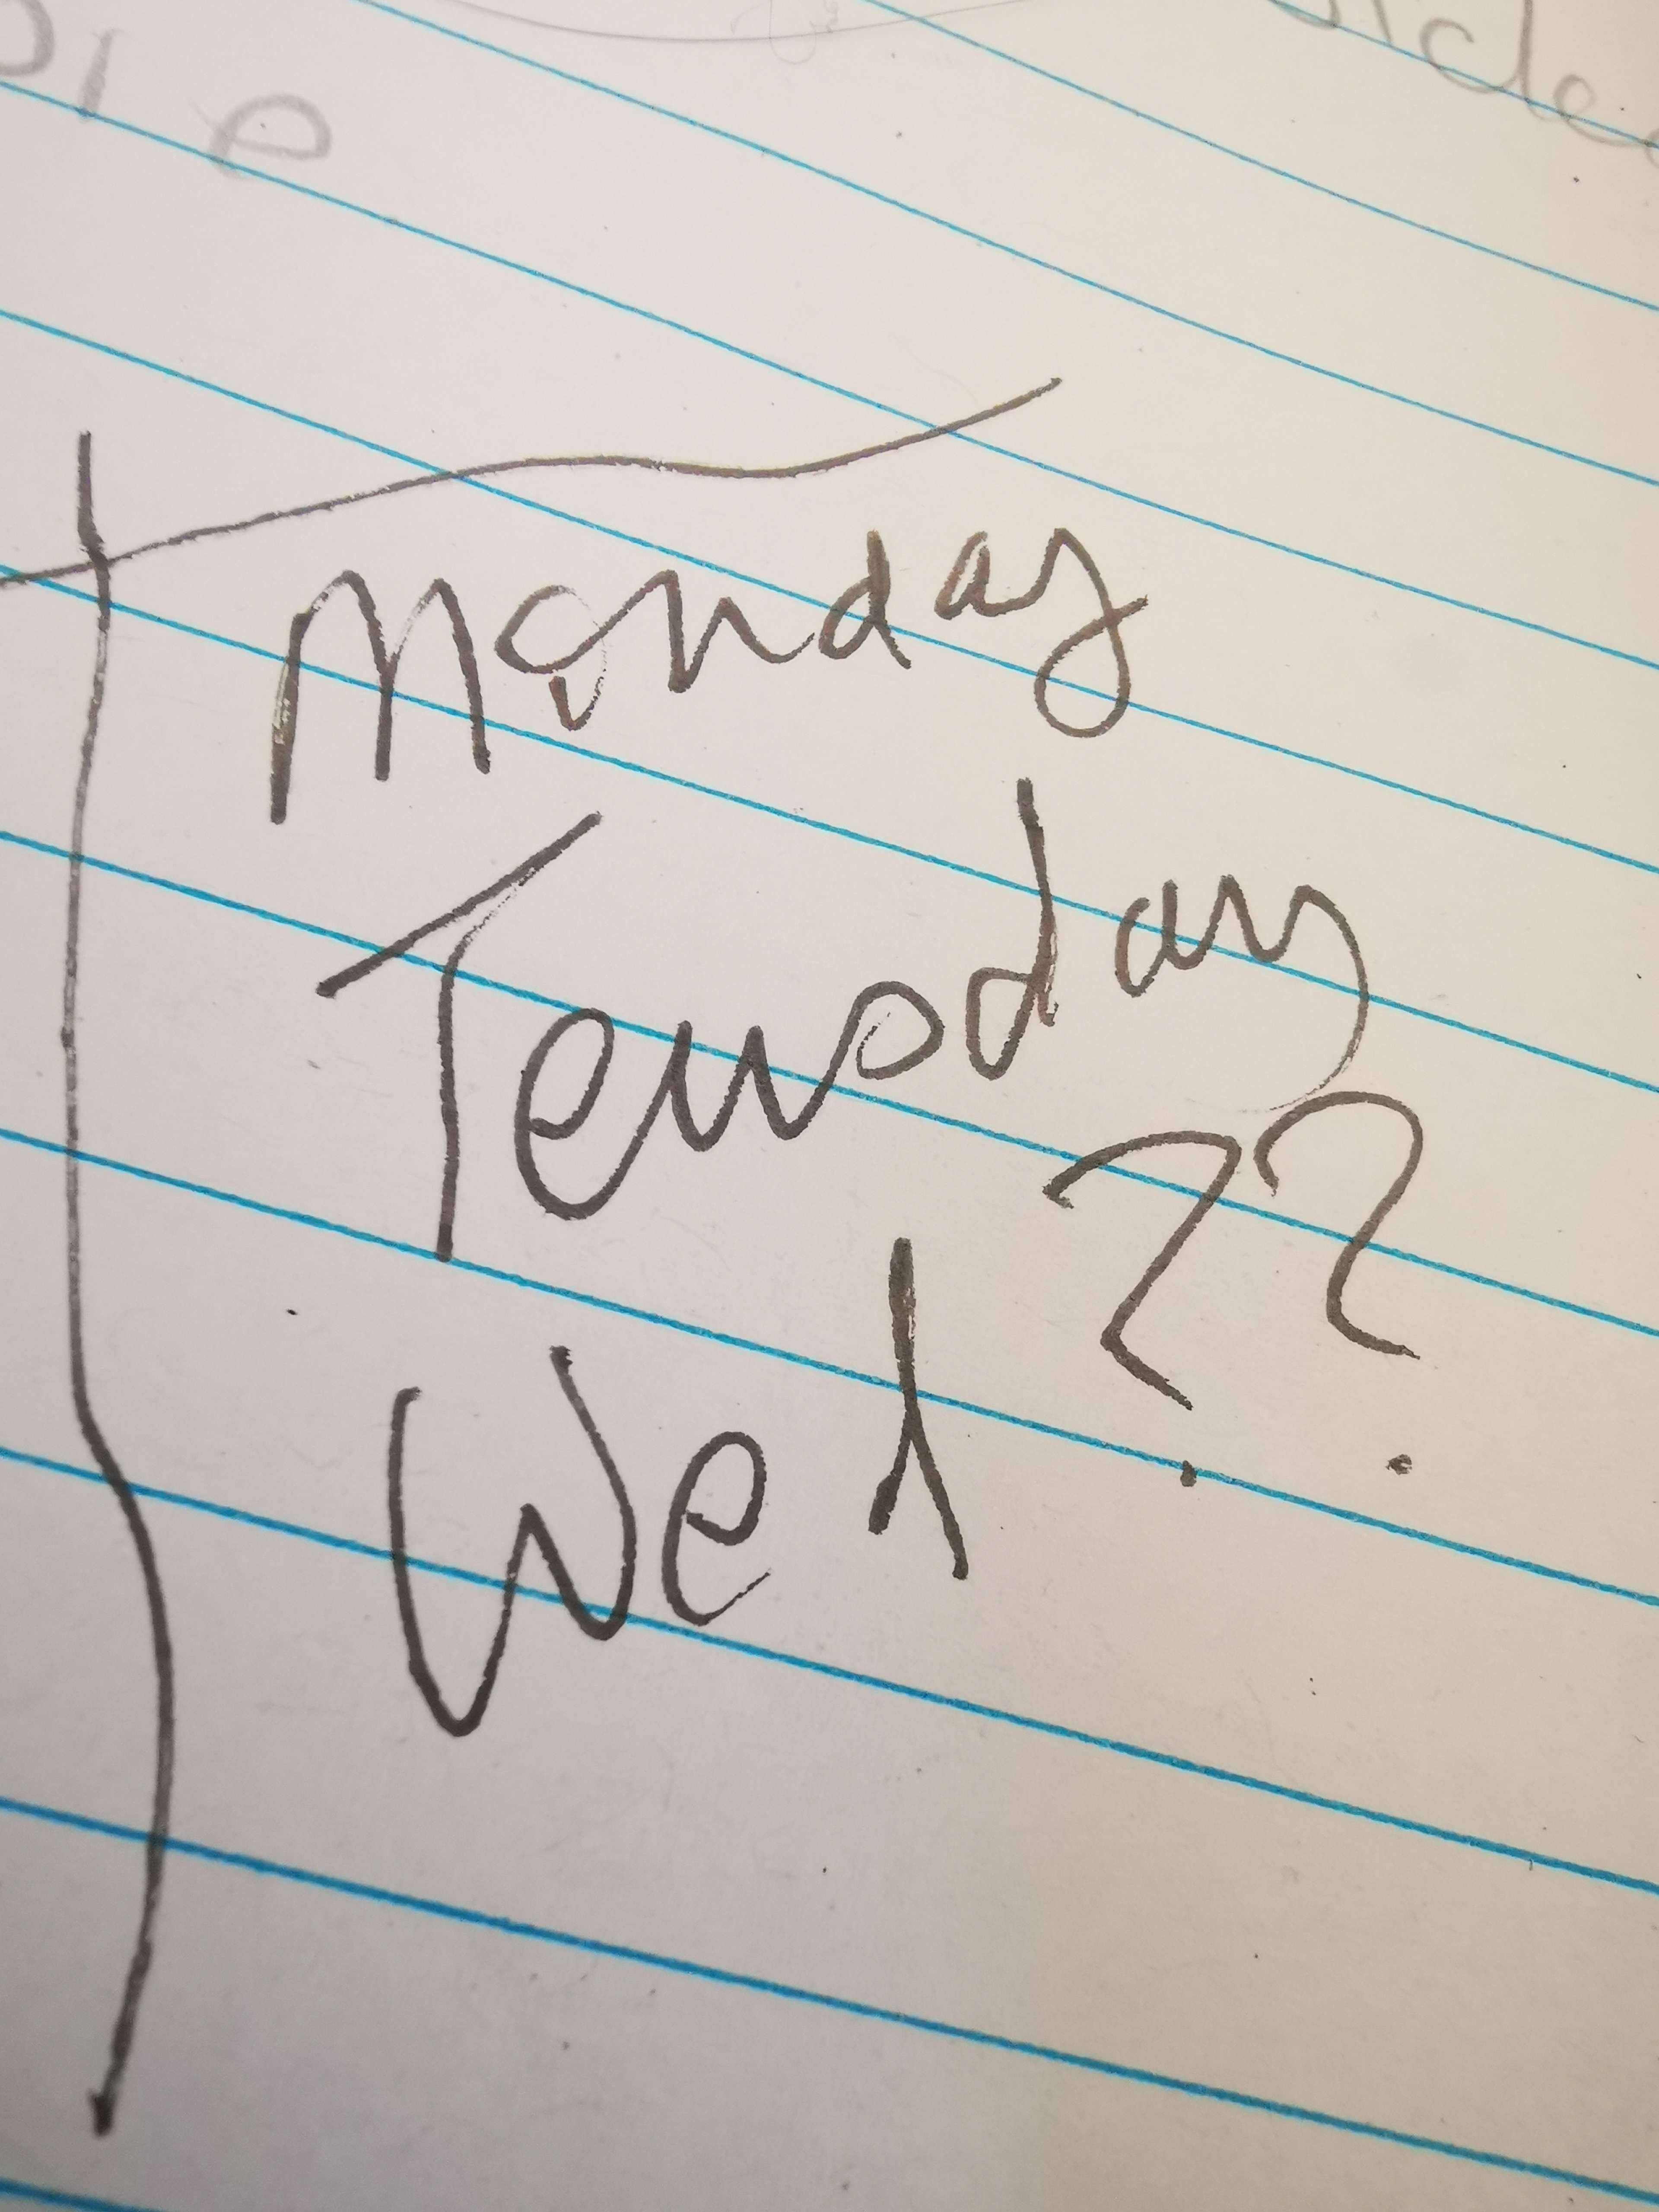 Monday
Teusday
Wed ??